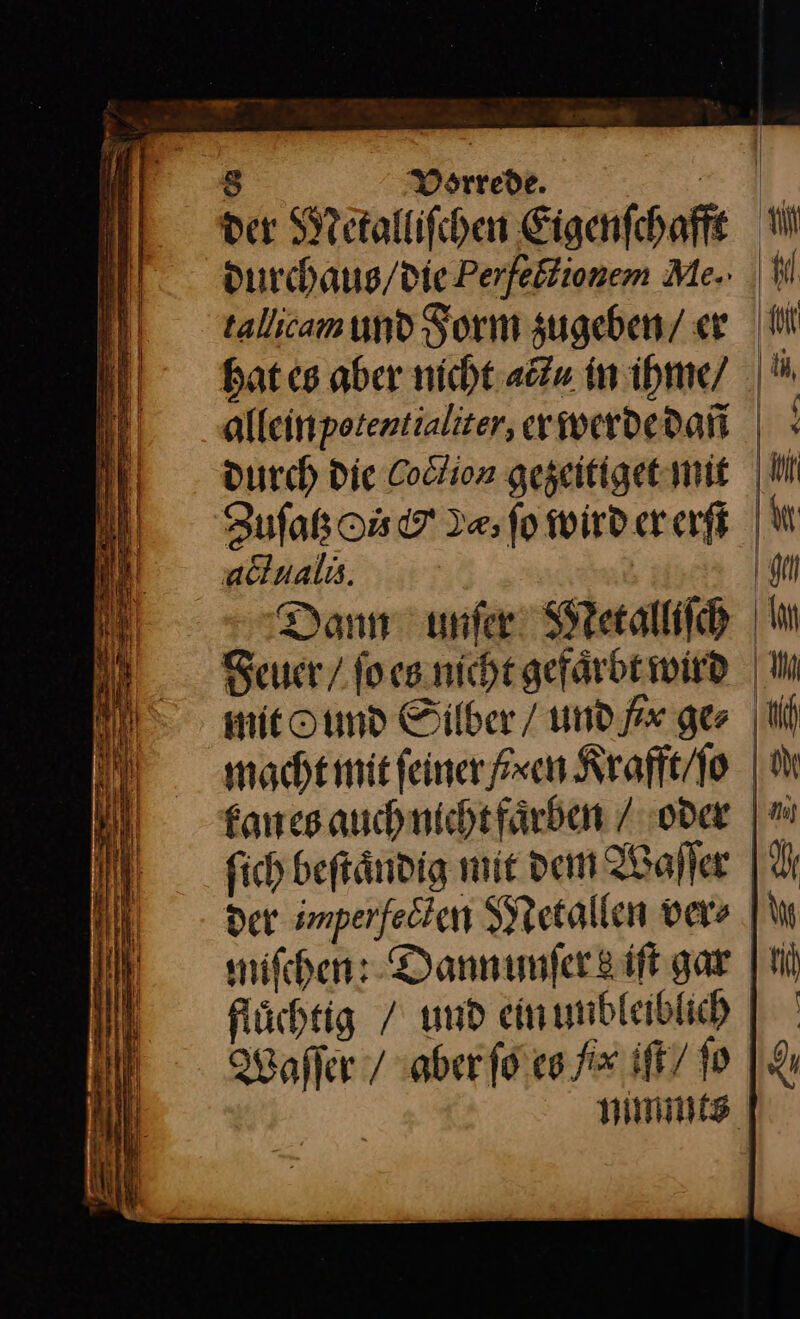 8 Vorrede.
der Metalliſchen Eigenſchafft
durchaus/die Perfectionem Me-
tallicam und Form zugeben/ er
hat es aber nicht actu in ihme/
allein potentialiter, er werde dañ
durch die Coction gezeitiget mit
Zuſatz ☉is & ☽æ, ſo wird er erſt
actualis.
Dann unſer Metalliſch
Feuer / ſo es nicht gefaͤrbt wird
mit ☉ und Silber / und fix ge⸗
macht mit ſeiner fixen Krafft/ſo
kan es auch nicht faͤrben / oder
ſich beſtaͤndig mit dem Waſſer
der imperfecten Metallen ver⸗
miſchen: Dann unſer ☿ iſt gar
fluͤchtig / und ein unbleiblich
Waſſer / aber ſo es fix iſt / ſo
nimmts